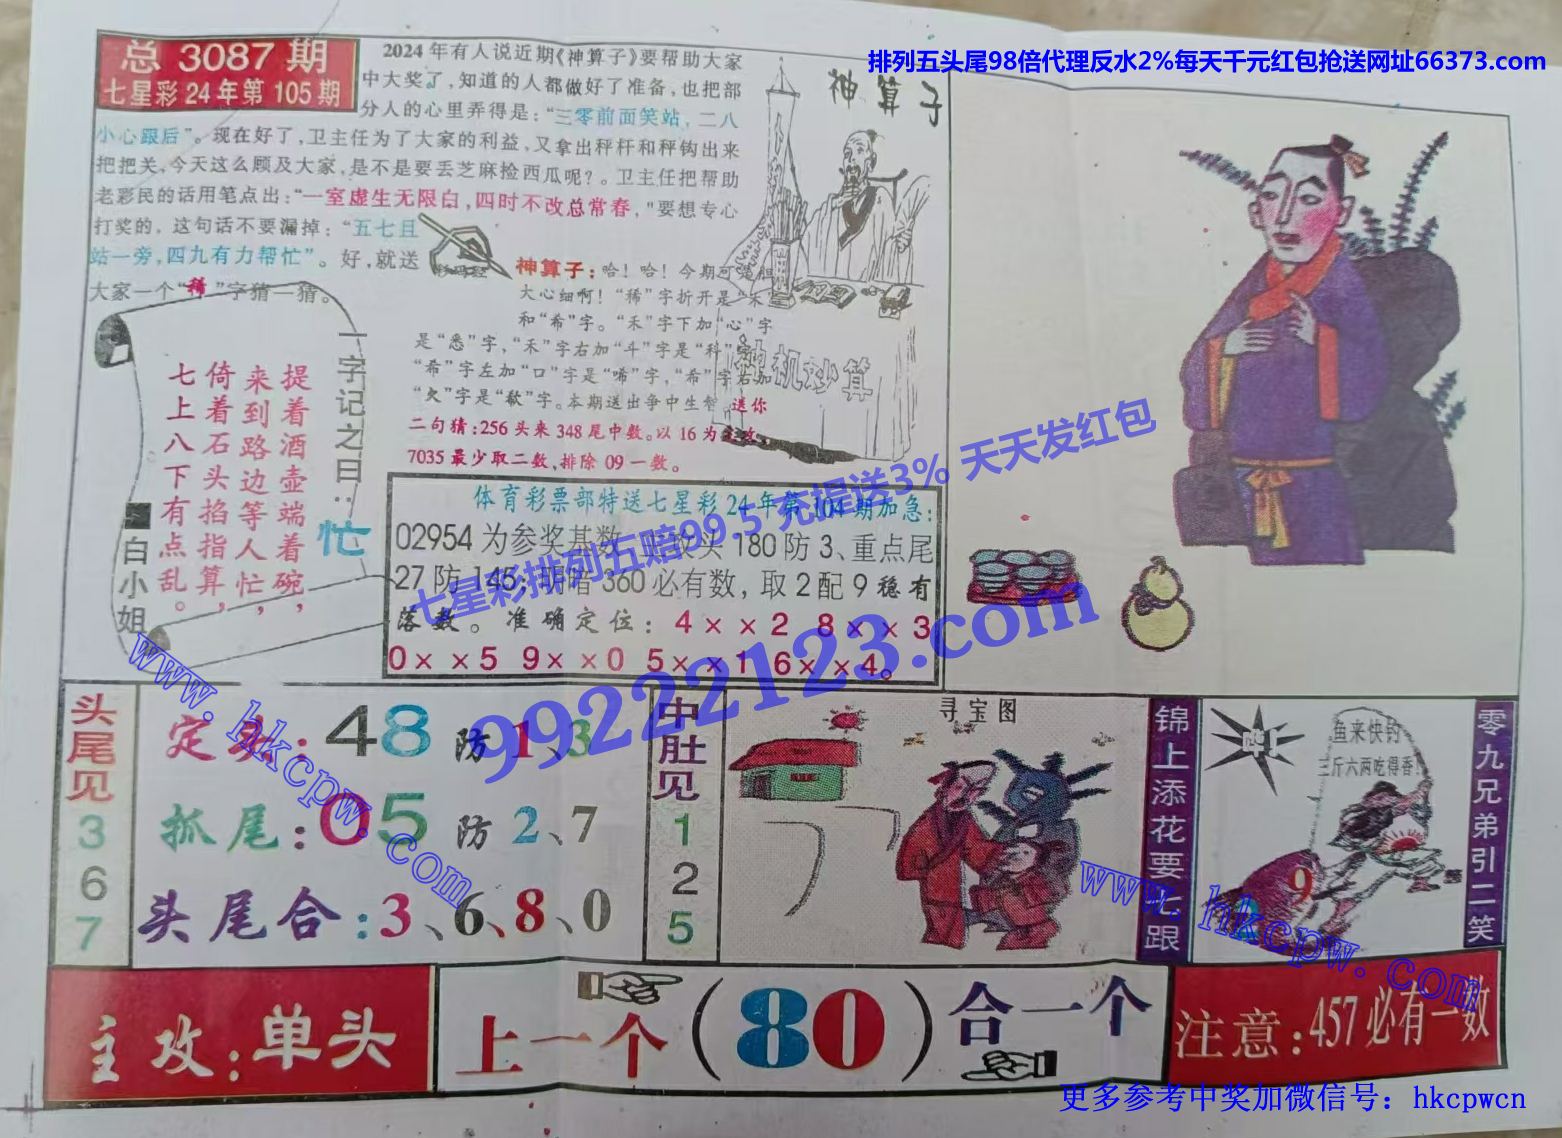 排列五头尾98倍代理反水2%每天千元红包抢送网址66373.com
总 3087 期
七星彩24年第105期
2024年有人说近期《神算子》要帮助大家
中大奖了,知道的人都做好了准备,也把部
分人的心里弄得是:“三零前面笑站,二八
小心跟后”。现在好了,卫主任为了大家的利益,又拿出秤杆和秤钩出来
把把关,今天这么顾及大家,是不是要丢芝麻捡西瓜呢?。卫主任把帮助
老彩民的话用笔点出:“一室虚生无限白,四时不改总常春,”要想专心
打奖的,这句话不要漏掉:“五七且
站一旁,四九有力帮忙”。好,就送
大家一个“稀”字猜一猜。
神算子
神算子:哈!哈!今期可是胆
大心细啊!“稀”字折开是“禾”
和“希”字。“禾”字下加“心”字
是“悉”字,“禾”字右加“斗”字是“科”字
“希”字左加“口”字是“唏”字,“希”字右加
“欠”字是“欷”字。本期送出争中生智,送你
二句猜:256头来348尾中数。以16为主攻,
7035最少取二数,排除09一数。
神机妙算
一字记之曰:
忙
提着酒壶端着碗,
来到路边等人忙,
倚着石头掐指算,
七上八下有点乱。
白小姐
体育彩票部特送七星彩24年第104期加急:
02954为参奖基数,主攻头180防3、重点尾
27防145;明暗360必有数,取2配9稳有
落数。准确定位:4××2 8××3
0××5 9××0 5××1 6××4。
七星彩排列五赔99.5 充提送3% 天天发红包
99222123.com
www.hkcpw.com
头尾见
3
6
7
定头:48防1、3
抓尾:05防2、7
头尾合:3、6、8、0
中肚见
1
2
5
寻宝图
锦上添花要七跟
鱼来快钓
三斤六两吃得香!
9
零九兄弟引二笑
www.hkcpw.com
主攻:单头
上一个(80)合一个
注意:457必有一数
更多参考中奖加微信号：hkcpwcn